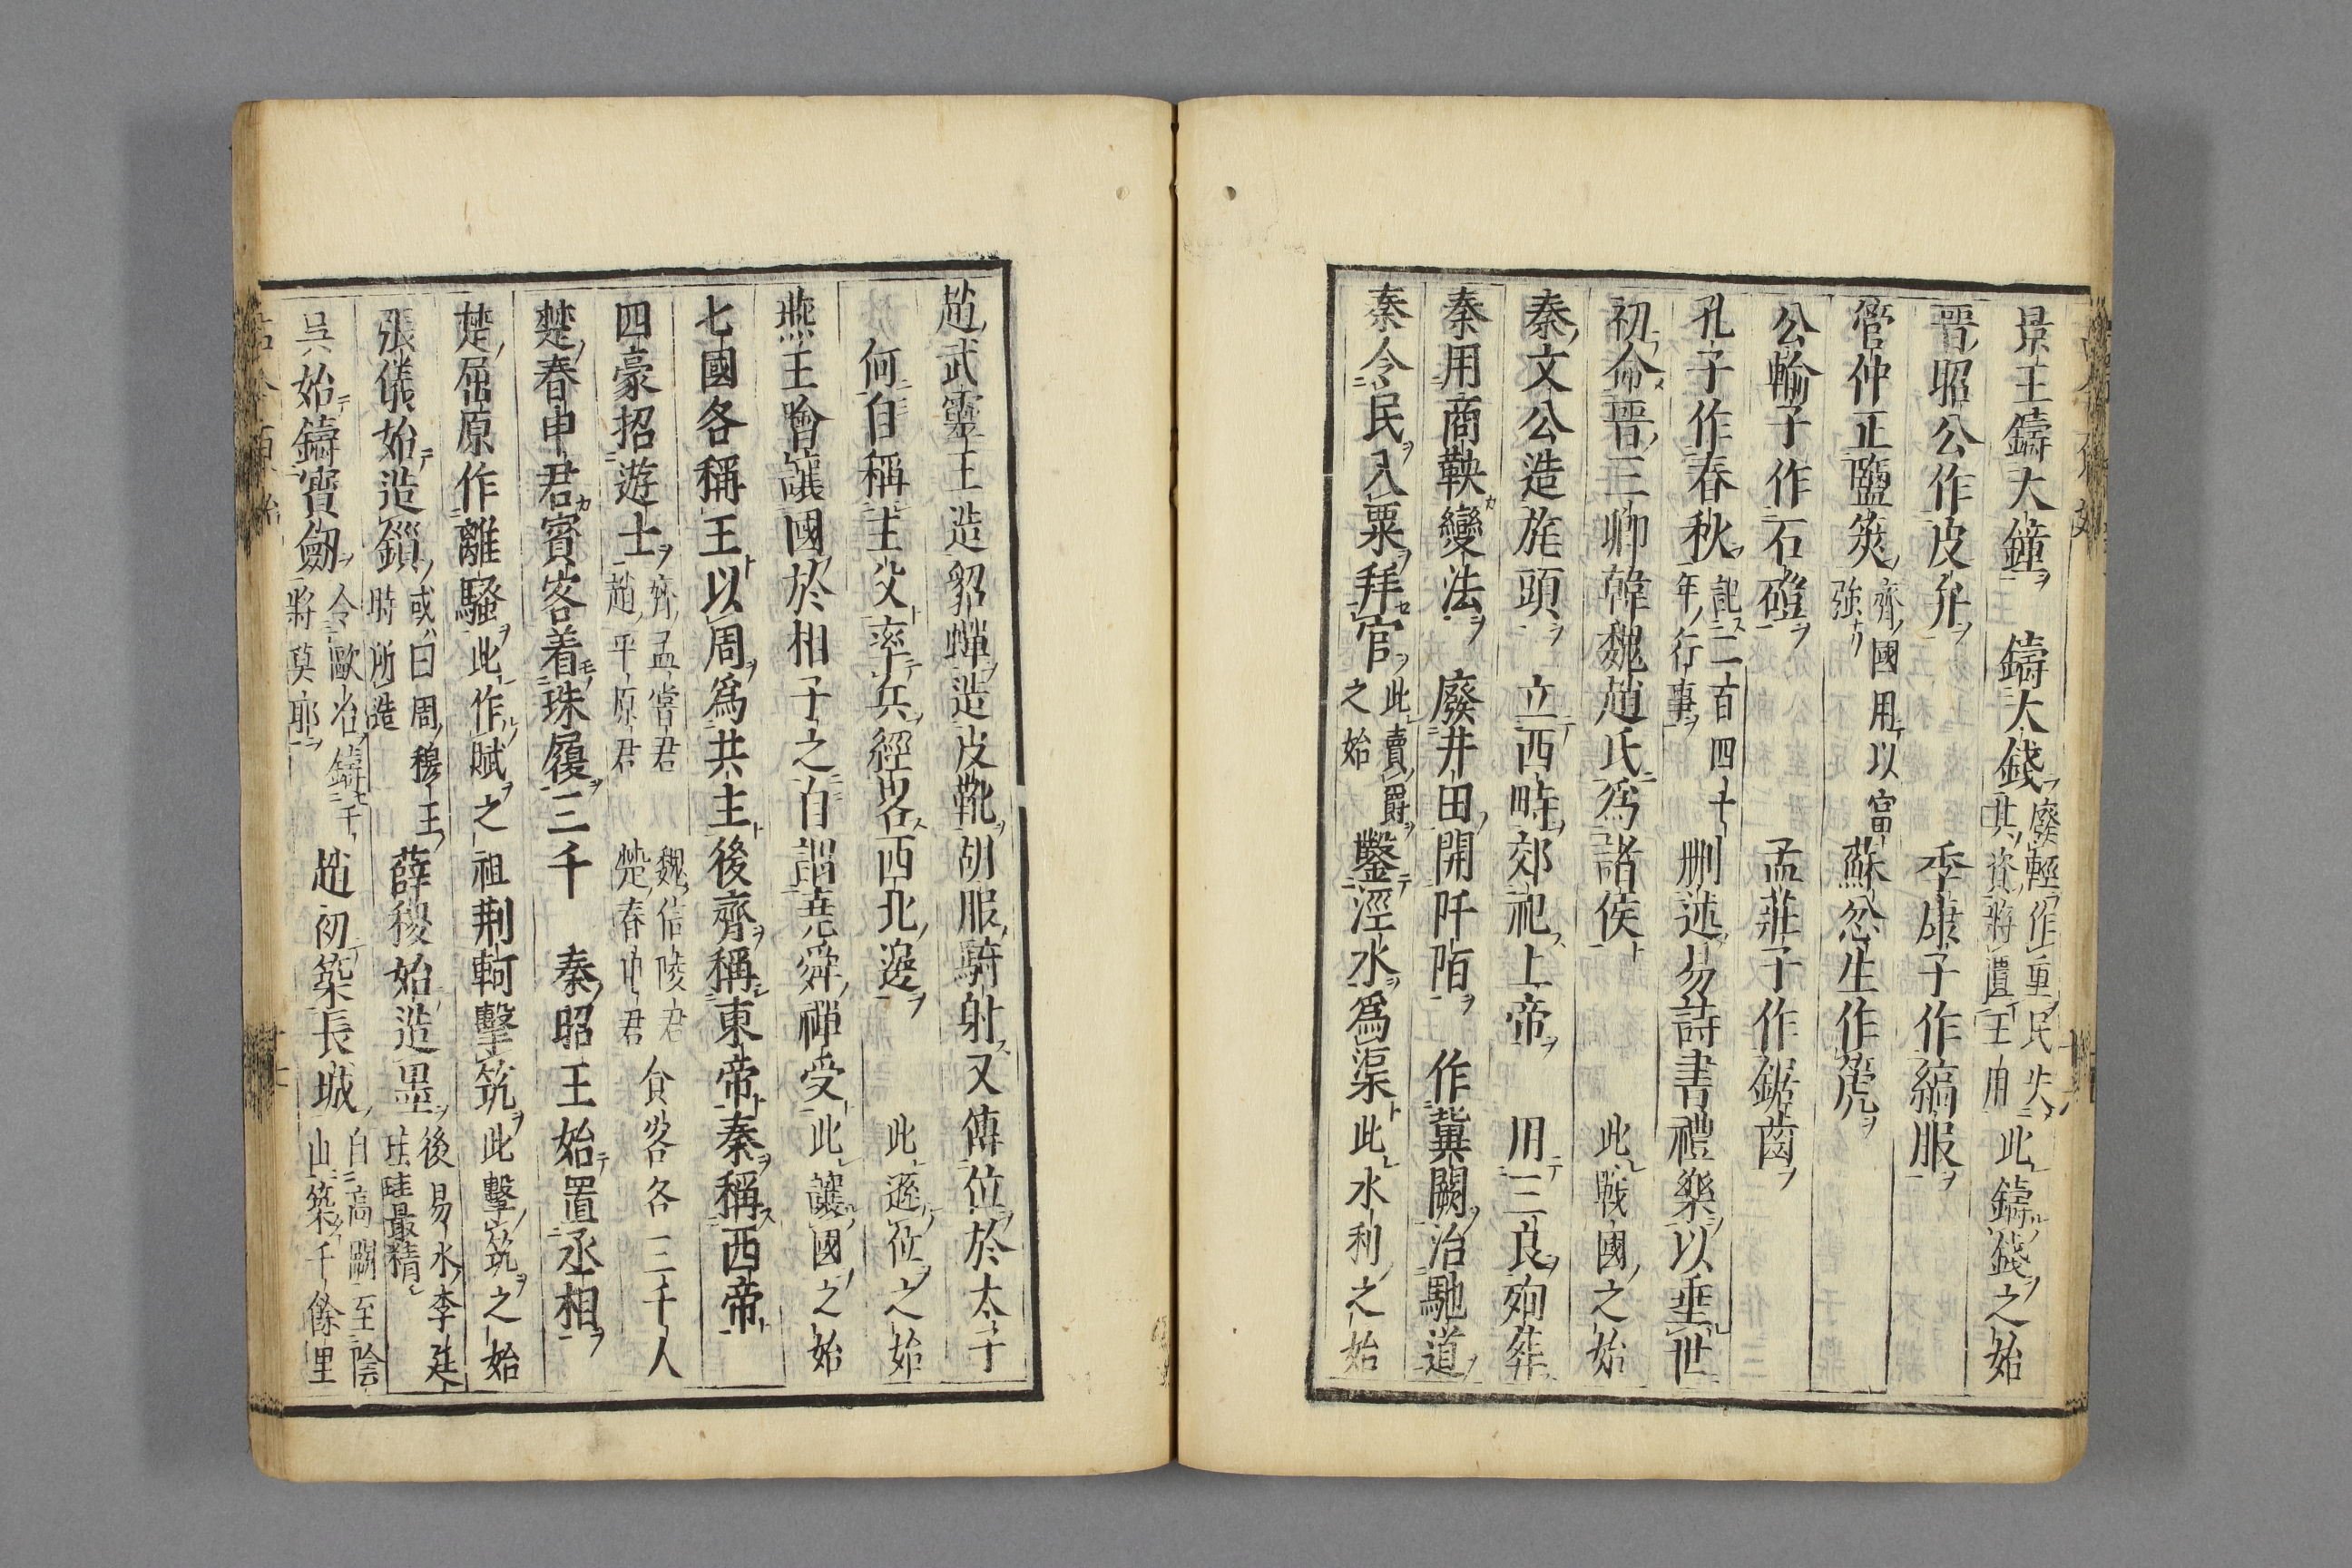 景王鑄大鐘 鑄大錢 廢輕作重民失其資將遺王用 此鑄錢之始
晋昭公作皮弁 季康子作縞服
管仲正鹽筴 齊國用以富強 蘇忿生作箎
公輸子作石磑 孟莊子作鋸齒
孔子作春秋 記二百四十年行事 刪述易詩書禮樂以垂世
初命晋三卿韓魏趙氏為諸侯 此戰國之始
秦文公造旄頭 立西畤郊祀上帝 用三良殉葬
秦用商鞅變法 廢井田開阡陌 作冀闕治馳道
秦令民入粟拜官 此賣爵之始 鑿涇水為渠 此水利之始
趙武靈王造貂蟬造皮靴胡服騎射又傳位於太子
何自稱主父率兵經畧西北邊 此遜位之始
燕王噲讓國於相子之自謂堯舜禪受 此讓國之始
七國各稱王以周爲共主後齊稱東帝秦稱西帝
四豪招遊士 齊孟嘗君趙平原君 魏信陵君楚春申君 食客各三千人
楚春申君賓客着珠履三千 秦昭王始置丞相
楚屈原作離騷 此作賦之祖 荆軻擊筑 此擊筑之始
張儀始造鎻 或曰周穆王時所造 薛稷始造墨 後易水李廷珪最精
呉始鑄寶劔 令歐冶鑄干將莫耶 趙初築長城 自高闕至陰山築千餘里